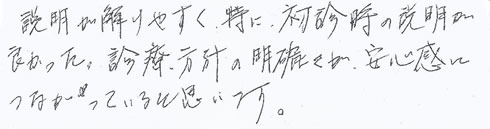 説明が解りやすく、特に、初診時の説明が
良かった。診療方針の明確さが、安心感に
つながっていると思います。